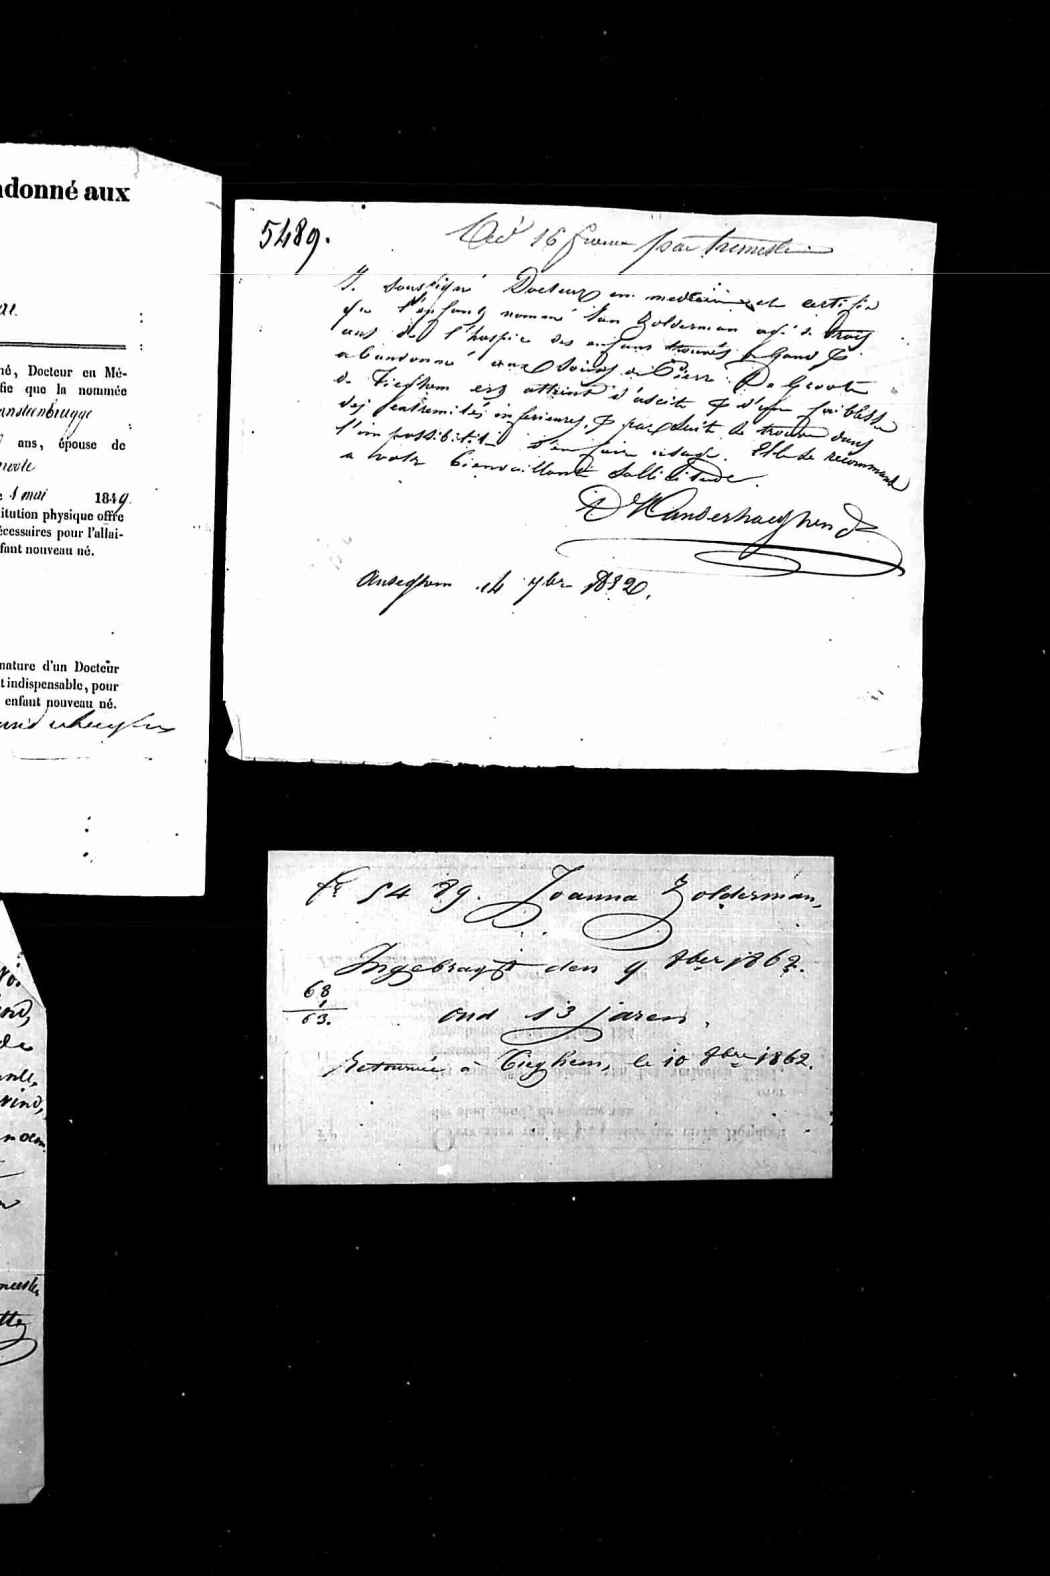 donné aux
né, Docteur en Mé-
fie que la nommée
ansteenbrugge
ans, épouse de
1 mai 1849.
titution physique offre
écessaires pour l'allai-
fant nouveau né.
nature d'un Docteur
t indispensable, pour
enfant nouveau né.
5489.
16 francs par trimestre
J. Soussigné Docteur en medecine et certifie
que l'enfant nommé Zolderman agé de trois
ans de l'hospice des enfans trouvés de Gand &
abandonné aux Soins de Pierre De Groote
de Tieghem est atteint d'ascite & d'une faiblesse
des extremités inferieures, & par suite se trouve dans
l'impossibilité d'en faire usage. Elle se recommande
a votre bienveillante sollicitude.
D Vanderhaeghen
Anseghem 14 7bre 1852.
5489. Joanna Zolderman,
Ingebragt den 9 8ber 1862.
68
63.
oud 13 jaren.
Retournée à Tieghem, le 10 8bre 1862.